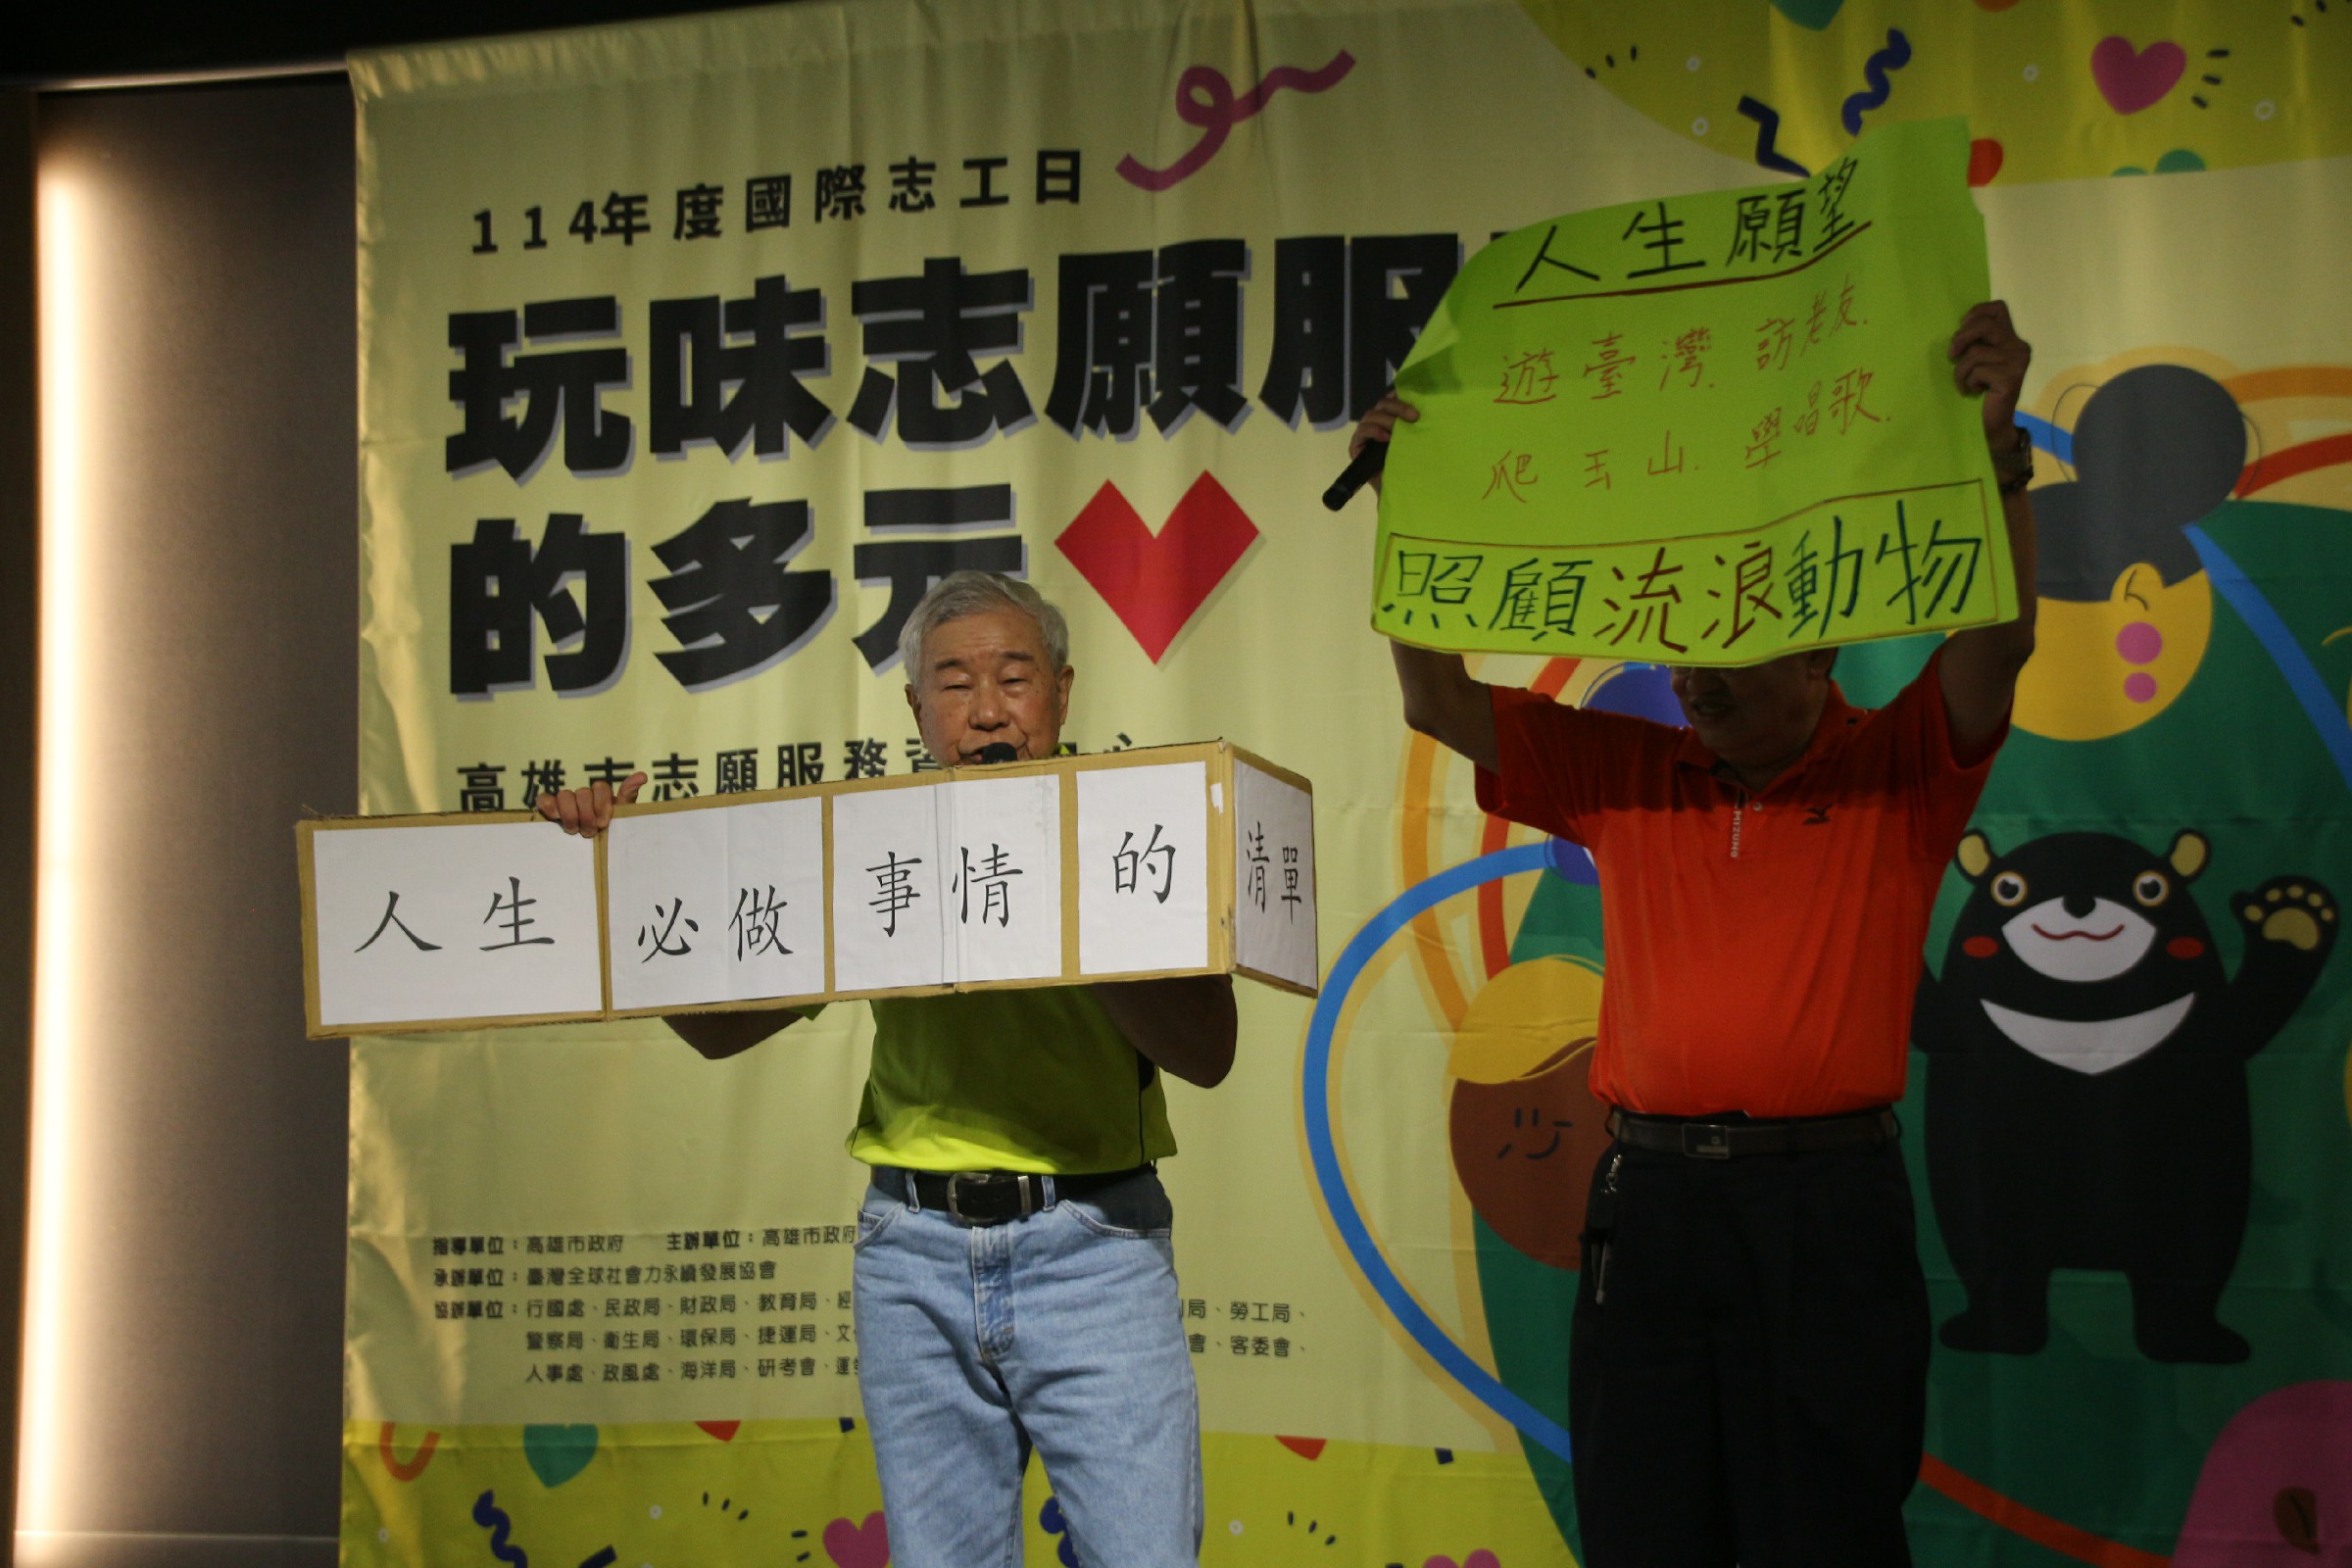 114年度國際志工日
玩味志願服
的多元
高雄市志願服務資
人生願望
遊臺灣.訪老友.
爬玉山.學唱歌.
照顧流浪動物
人生必做事情的清單
MIZUNO
指導單位：高雄市政府 主辦單位：高雄市政府
承辦單位：臺灣全球社會力永續發展協會
協辦單位：行國處、民政局、財政局、教育局、經 局、勞工局、
警察局、衛生局、環保局、捷運局、文 會、客委會、
人事處、政風處、海洋局、研考會、運